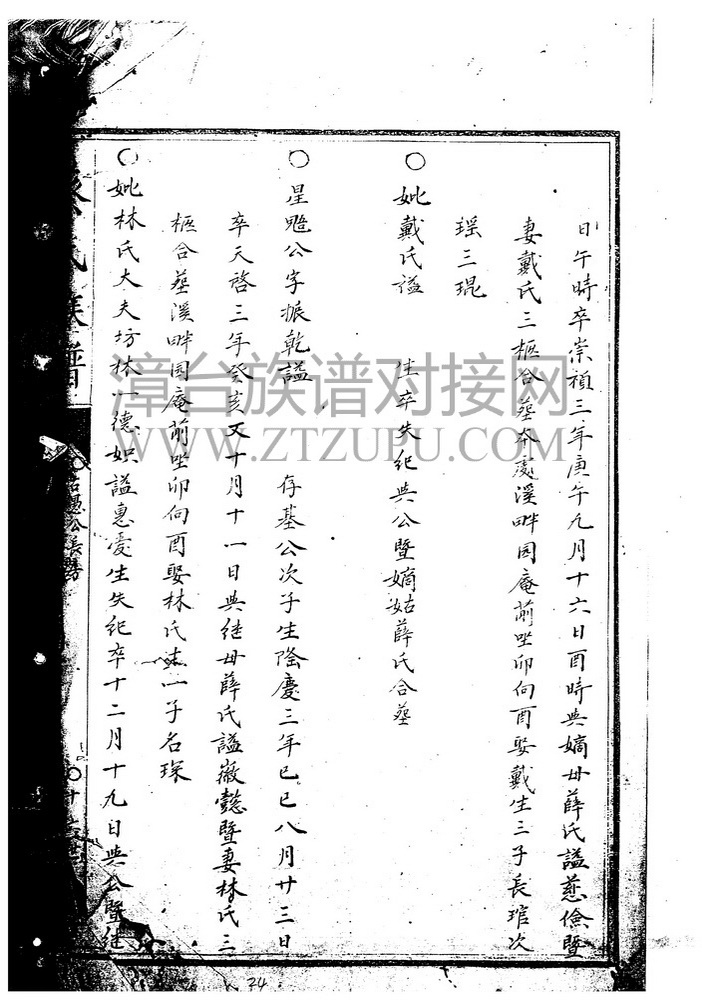 日午時卒崇禎三年庚午九月十六日酉時與嫡母薛氏謚慈儉暨
妻戴氏三柩合塟本處溪畔园庵前坐卯向酉娶戴生三子長琯次
瑶三琨
〇妣戴氏謚 生卒失紀與公暨嫡姑薛氏合塟
〇星 公字振乾謚 存基公次子生隆慶三年己巳八月廿三日
卒天啓三年癸亥又十月十一日與继母薛氏謚 懿暨妻林氏三
柩合塟溪畔园庵前坐卯向酉娶林氏生一子名琛
〇妣林氏大夫坊林一德 謚惠愛生失紀卒十二月十九日與公暨继
氏族譜
公長房
漳台族谱对接网
WWW.ZTZUPU.COM
24